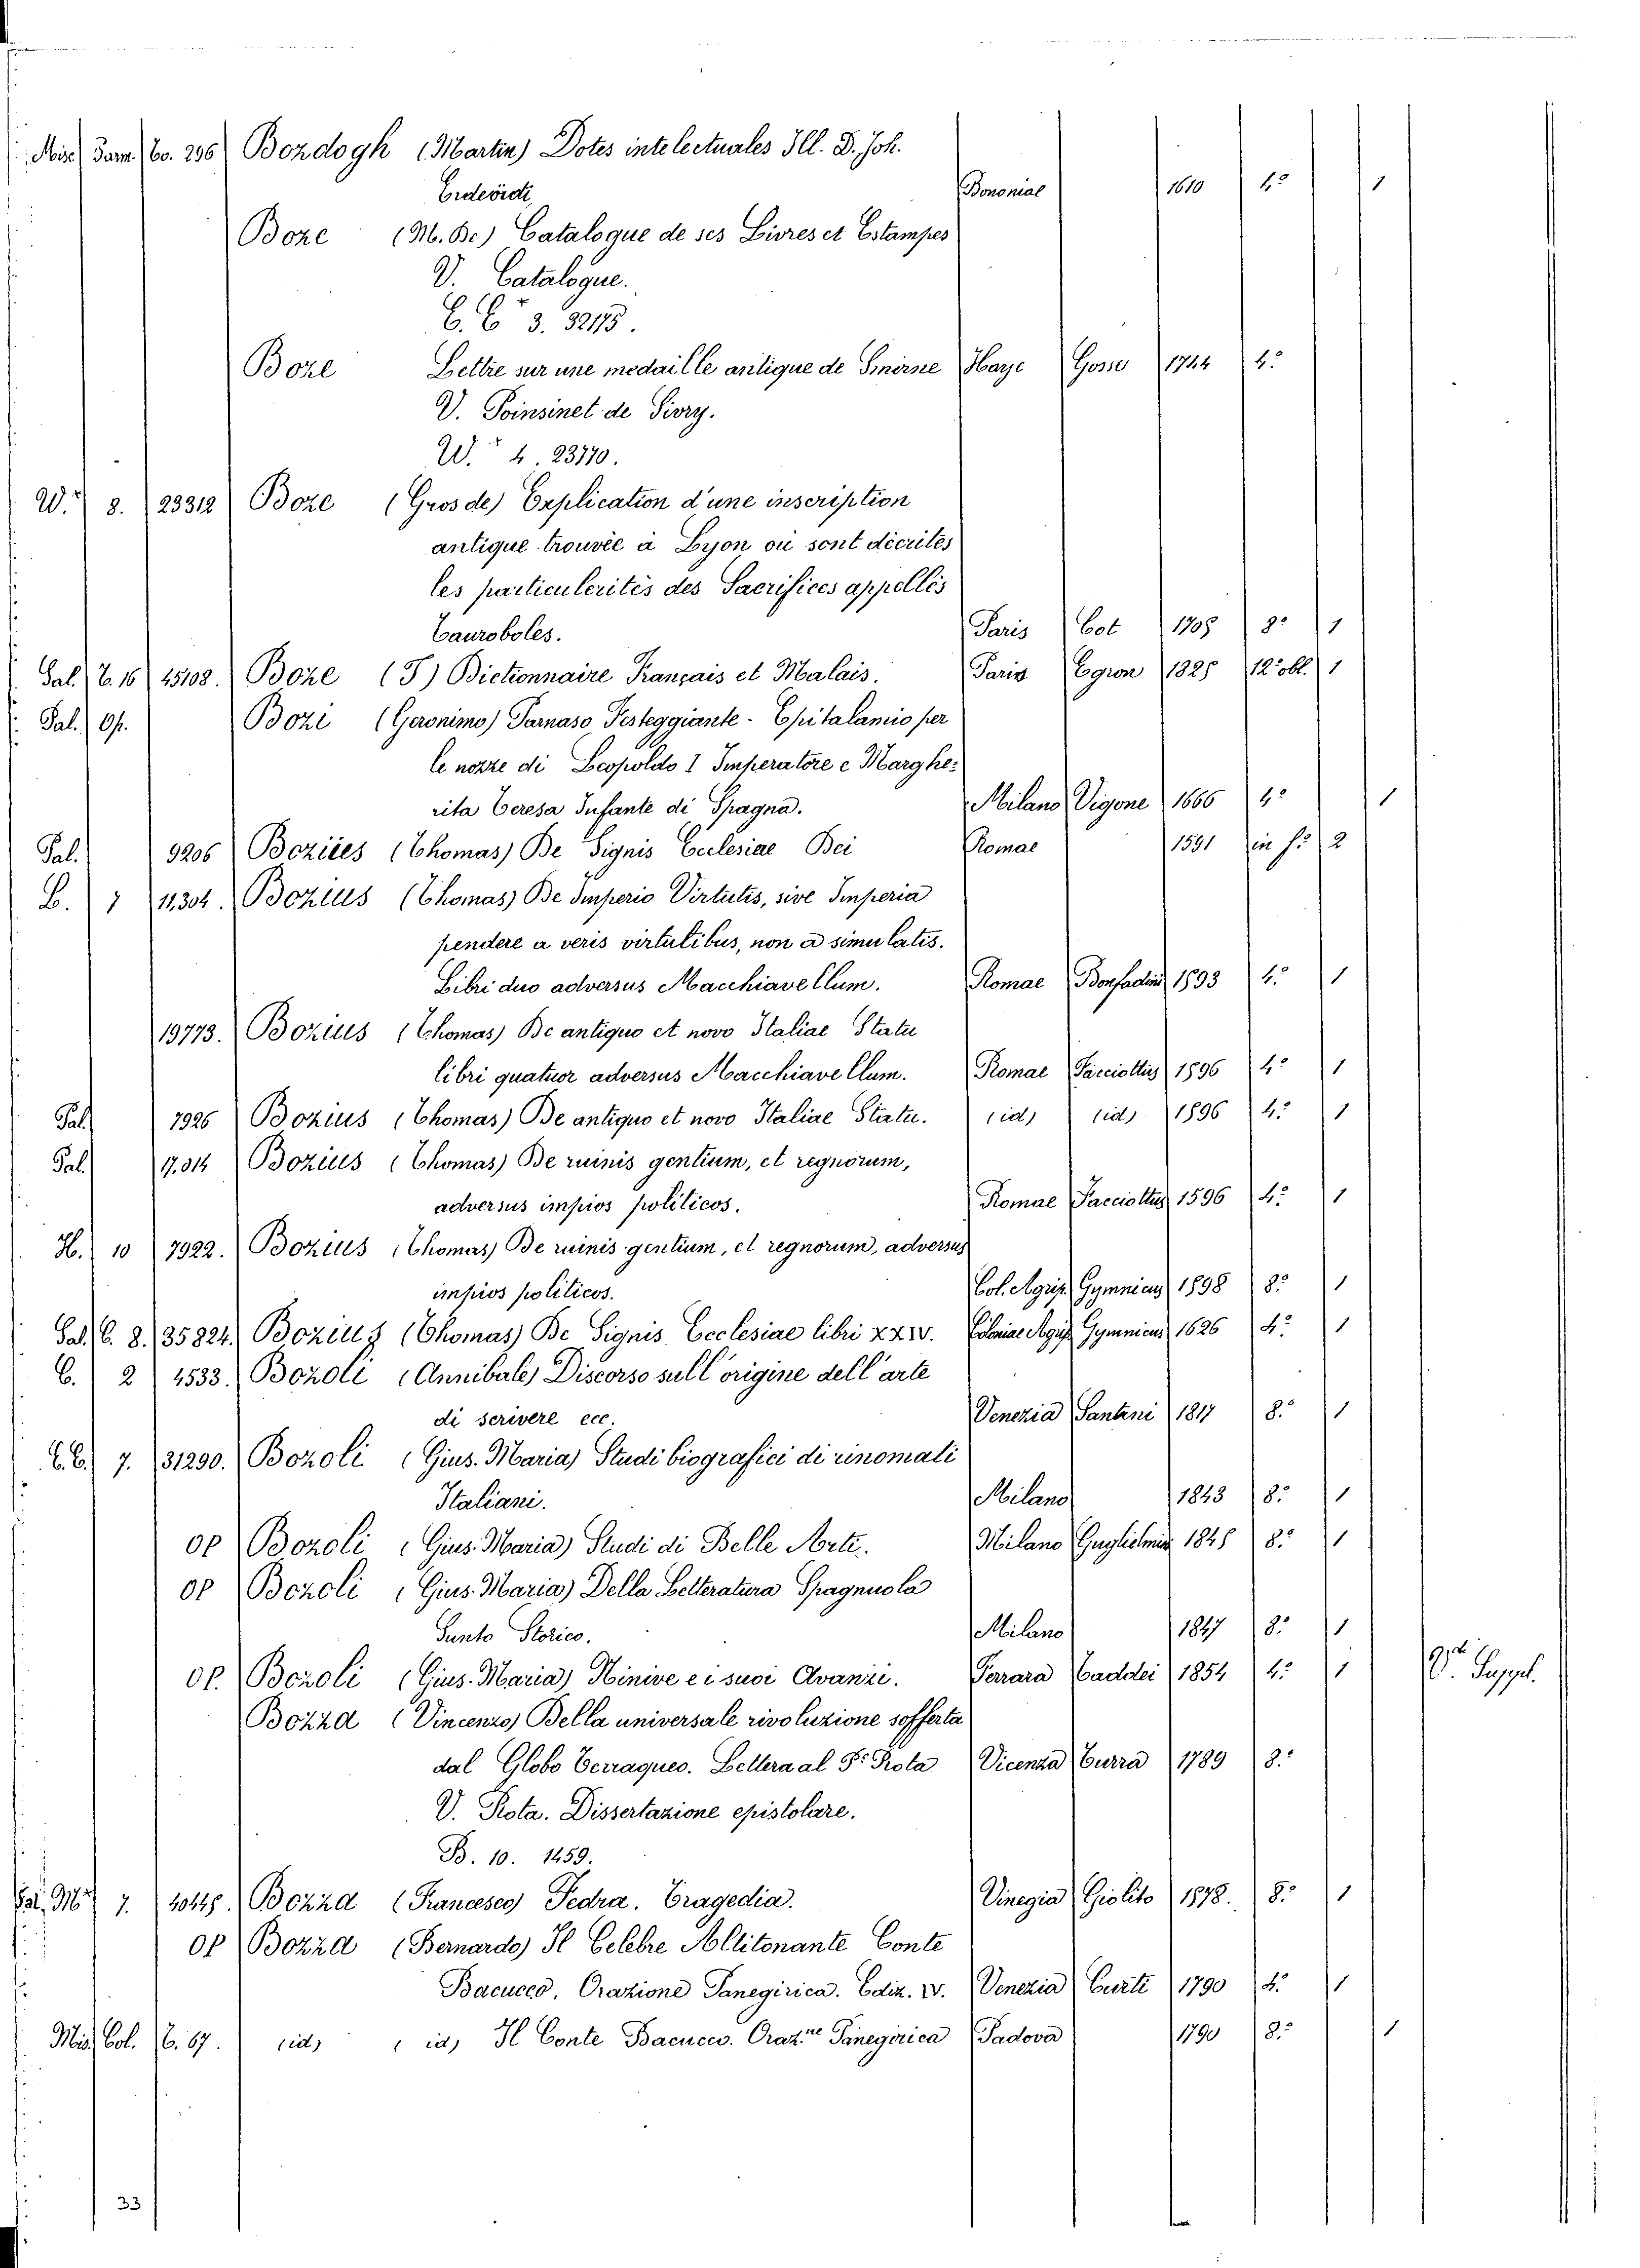 Misc. Tom. 60. 296 Bozdogh (Martin) Dotes intelectuales Ill. D. Joh.
Erdeödi Bononiae 1610 4º 1
Boze (M. De) Catalogue de ses Livres et Estampes
V. Catalogue.
C. C 3. 32175.
Boze Lettre sur une medaille antique de Smirne Haye Gosse 1744 4º
V. Poinsinet de Sivry.
W. 4. 23770.
W. 8. 23312 Boze (Gros de) Explication d'une inscription
antique trouvée a Lyon ou sont décrites
les particulerités des Sacrifices appellés
Tauroboles. Paris Cot 1705 8º 1
Pal. C. 16 15108. Boze (J) Dictionnaire Français et Malais. Paris Egron 1825 12º obl. 1
Pal. Op. Bozi (Geronimo) Parnaso Festeggiante - Epitalamio per
le nozze di Leopoldo I Imperatore e Marghe-
rita Teresa Infante di Spagna. Milano Vigone 1666 4º 1
Pal. 9206 Bozius (Thomas) De Signis Ecclesiae Dei Romae 1591 in fº 2
L. 7 11,304. Bozius (Thomas) De Imperio Virtutis, sive Imperia
pendere a veris virtutibus, non a simulatis.
Libri duo adversus Macchiavellum. Romae Bonfadini 1593 4º 1
19773. Bozius (Thomas) De antiquo et novo Italiae Statu
libri quatuor adversus Macchiavellum. Romae Facciottus 1596 4º 1
Pal. 7926 Bozius (Thomas) De antiquo et novo Italiae Statu. (id) (id) 1596 4º 1
Pal. 17.014 Bozius (Thomas) De ruinis gentium, et regnorum,
adversus impios politicos. Romae Facciottus 1596 4º 1
H. 10 7922. Bozius (Thomas) De ruinis gentium, et regnorum, adversus
impios politicos. Col. Agrip. Gymnicus 1598 8º 1
Pal. C. 8. 35824. Bozius (Thomas) De Signis Ecclesiae libri XXIV. Coloniae Agrip. Gymnicus 1626 4º 1
C. 2 4533. Bozoli (Annibale) Discorso sull'origine dell'arte
di scrivere ecc. Venezia Santini 1817 8º 1
C.C. 7. 31290. Bozoli (Gius. Maria) Studi biografici di rinomati
Italiani. Milano 1843 8º 1
op Bozoli (Gius. Maria) Studi di Belle Arti. Milano Guglielmini 1845 8º 1
op Bozoli (Gius. Maria) Della Letteratura Spagnuola
Sunto Storico. Milano 1847 8º 1
op. Bozoli (Gius. Maria) Ninive e i suoi Avanzi. Ferrara Taddei 1854 4º 1 Vd. Suppl.
Bozza (Vincenzo) Della universale rivoluzione sofferta
dal Globo Terraqueo. Lettera al Sr. Rota Vicenza Turra 1789 8º
V. Rota. Dissertazione epistolare.
B. 10. 1459.
Pal. M. 7. 40445. Bozza (Francesco) Fedra. Tragedia. Vinegia Giolito 1578. 8º 1
op Bozza (Bernardo) Il Celebre Altitonante Conte
Bacucco, Orazione Panegirica. Ediz. IV. Venezia Curti 1790 4º 1
Mis. Col. C. 67. (id) (id) Il Conte Bacucco. Orazne Panegirica Padova 1790 8º 1
33